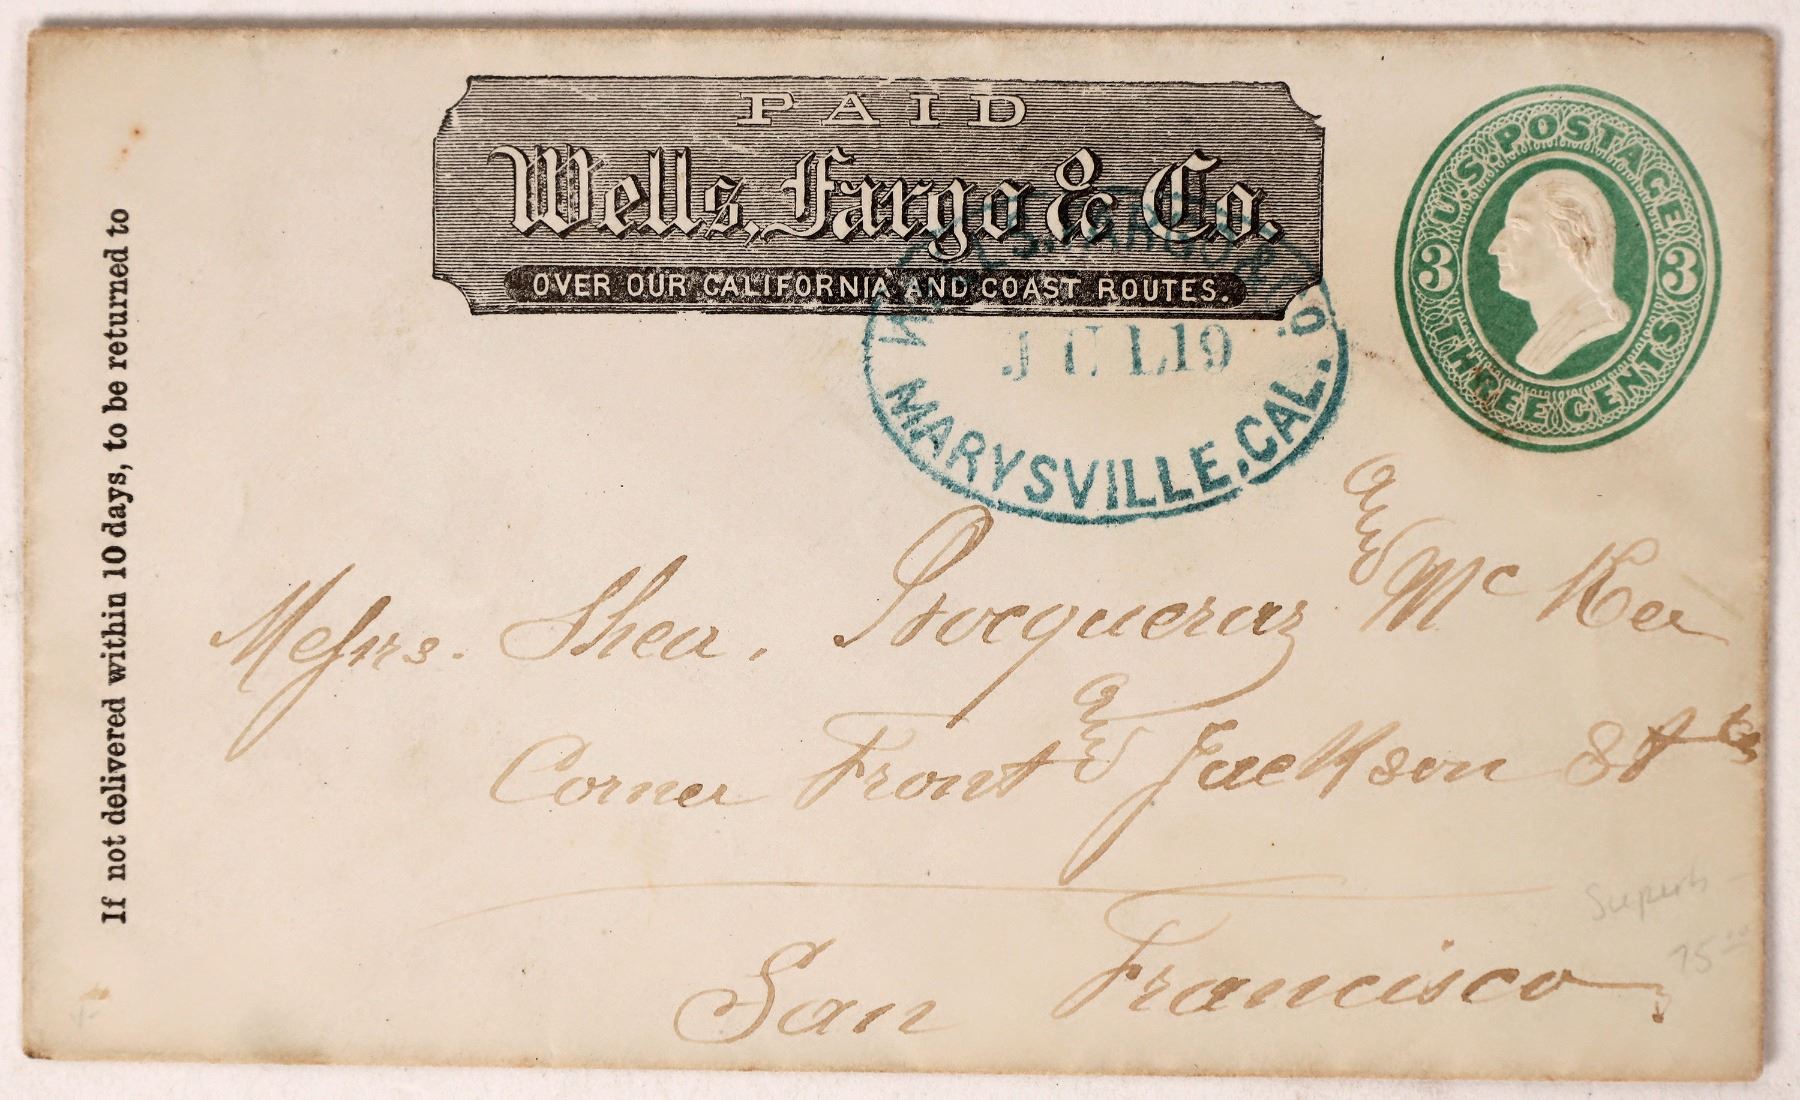 PAID
Wells, Fargo & Co.
OVER OUR CALIFORNIA AND COAST ROUTES.
U.S. POSTAGE
3 3
THREE CENTS
WELLS, FARGO & CO.
JUL 19
MARYSVILLE, CAL.
If not delivered within 10 days, to be returned to
Messrs. Shea, Bocqueraz and McKee
Corner Front and Jackson Sts
San Francisco
Superb
75.00